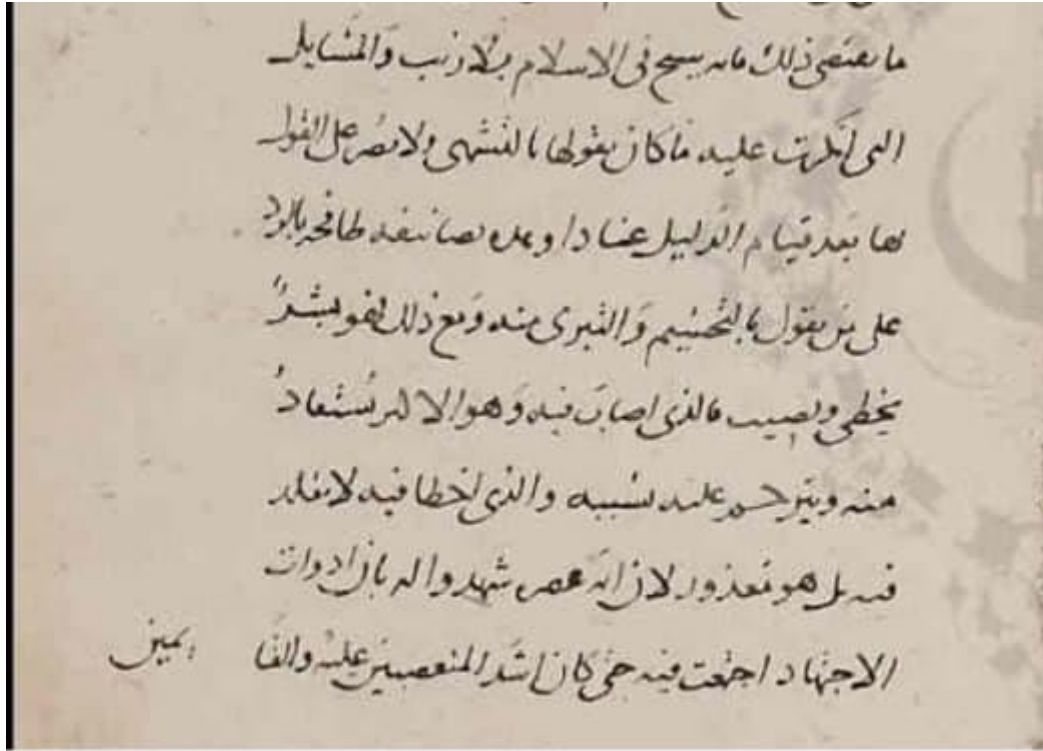 ما يقتضي ذلك فانه شيخ في الاسلام بلا ريب والمسايل
التي انكرت عليه ما كان يقولها بالتشهي ولا يصر على القول
بها بعد قيام الدليل عنادا وهذه تصانيفه طافحة بالرد
على من يقول بالتجسيم والتبري منه ومع ذلك فهو بشر
يخطي ويصيب فالذي اصاب فيه وهو الاكثر يستفاد
منه ويترحم عليه بسببه والذي اخطا فيه لا يقلد
فيه بل هو معذور لان ائمة عصره شهدوا له بان ادوات
الاجتهاد اجتمعت فيه حتى كان اشد المتعصبين عليه والقا
يمين